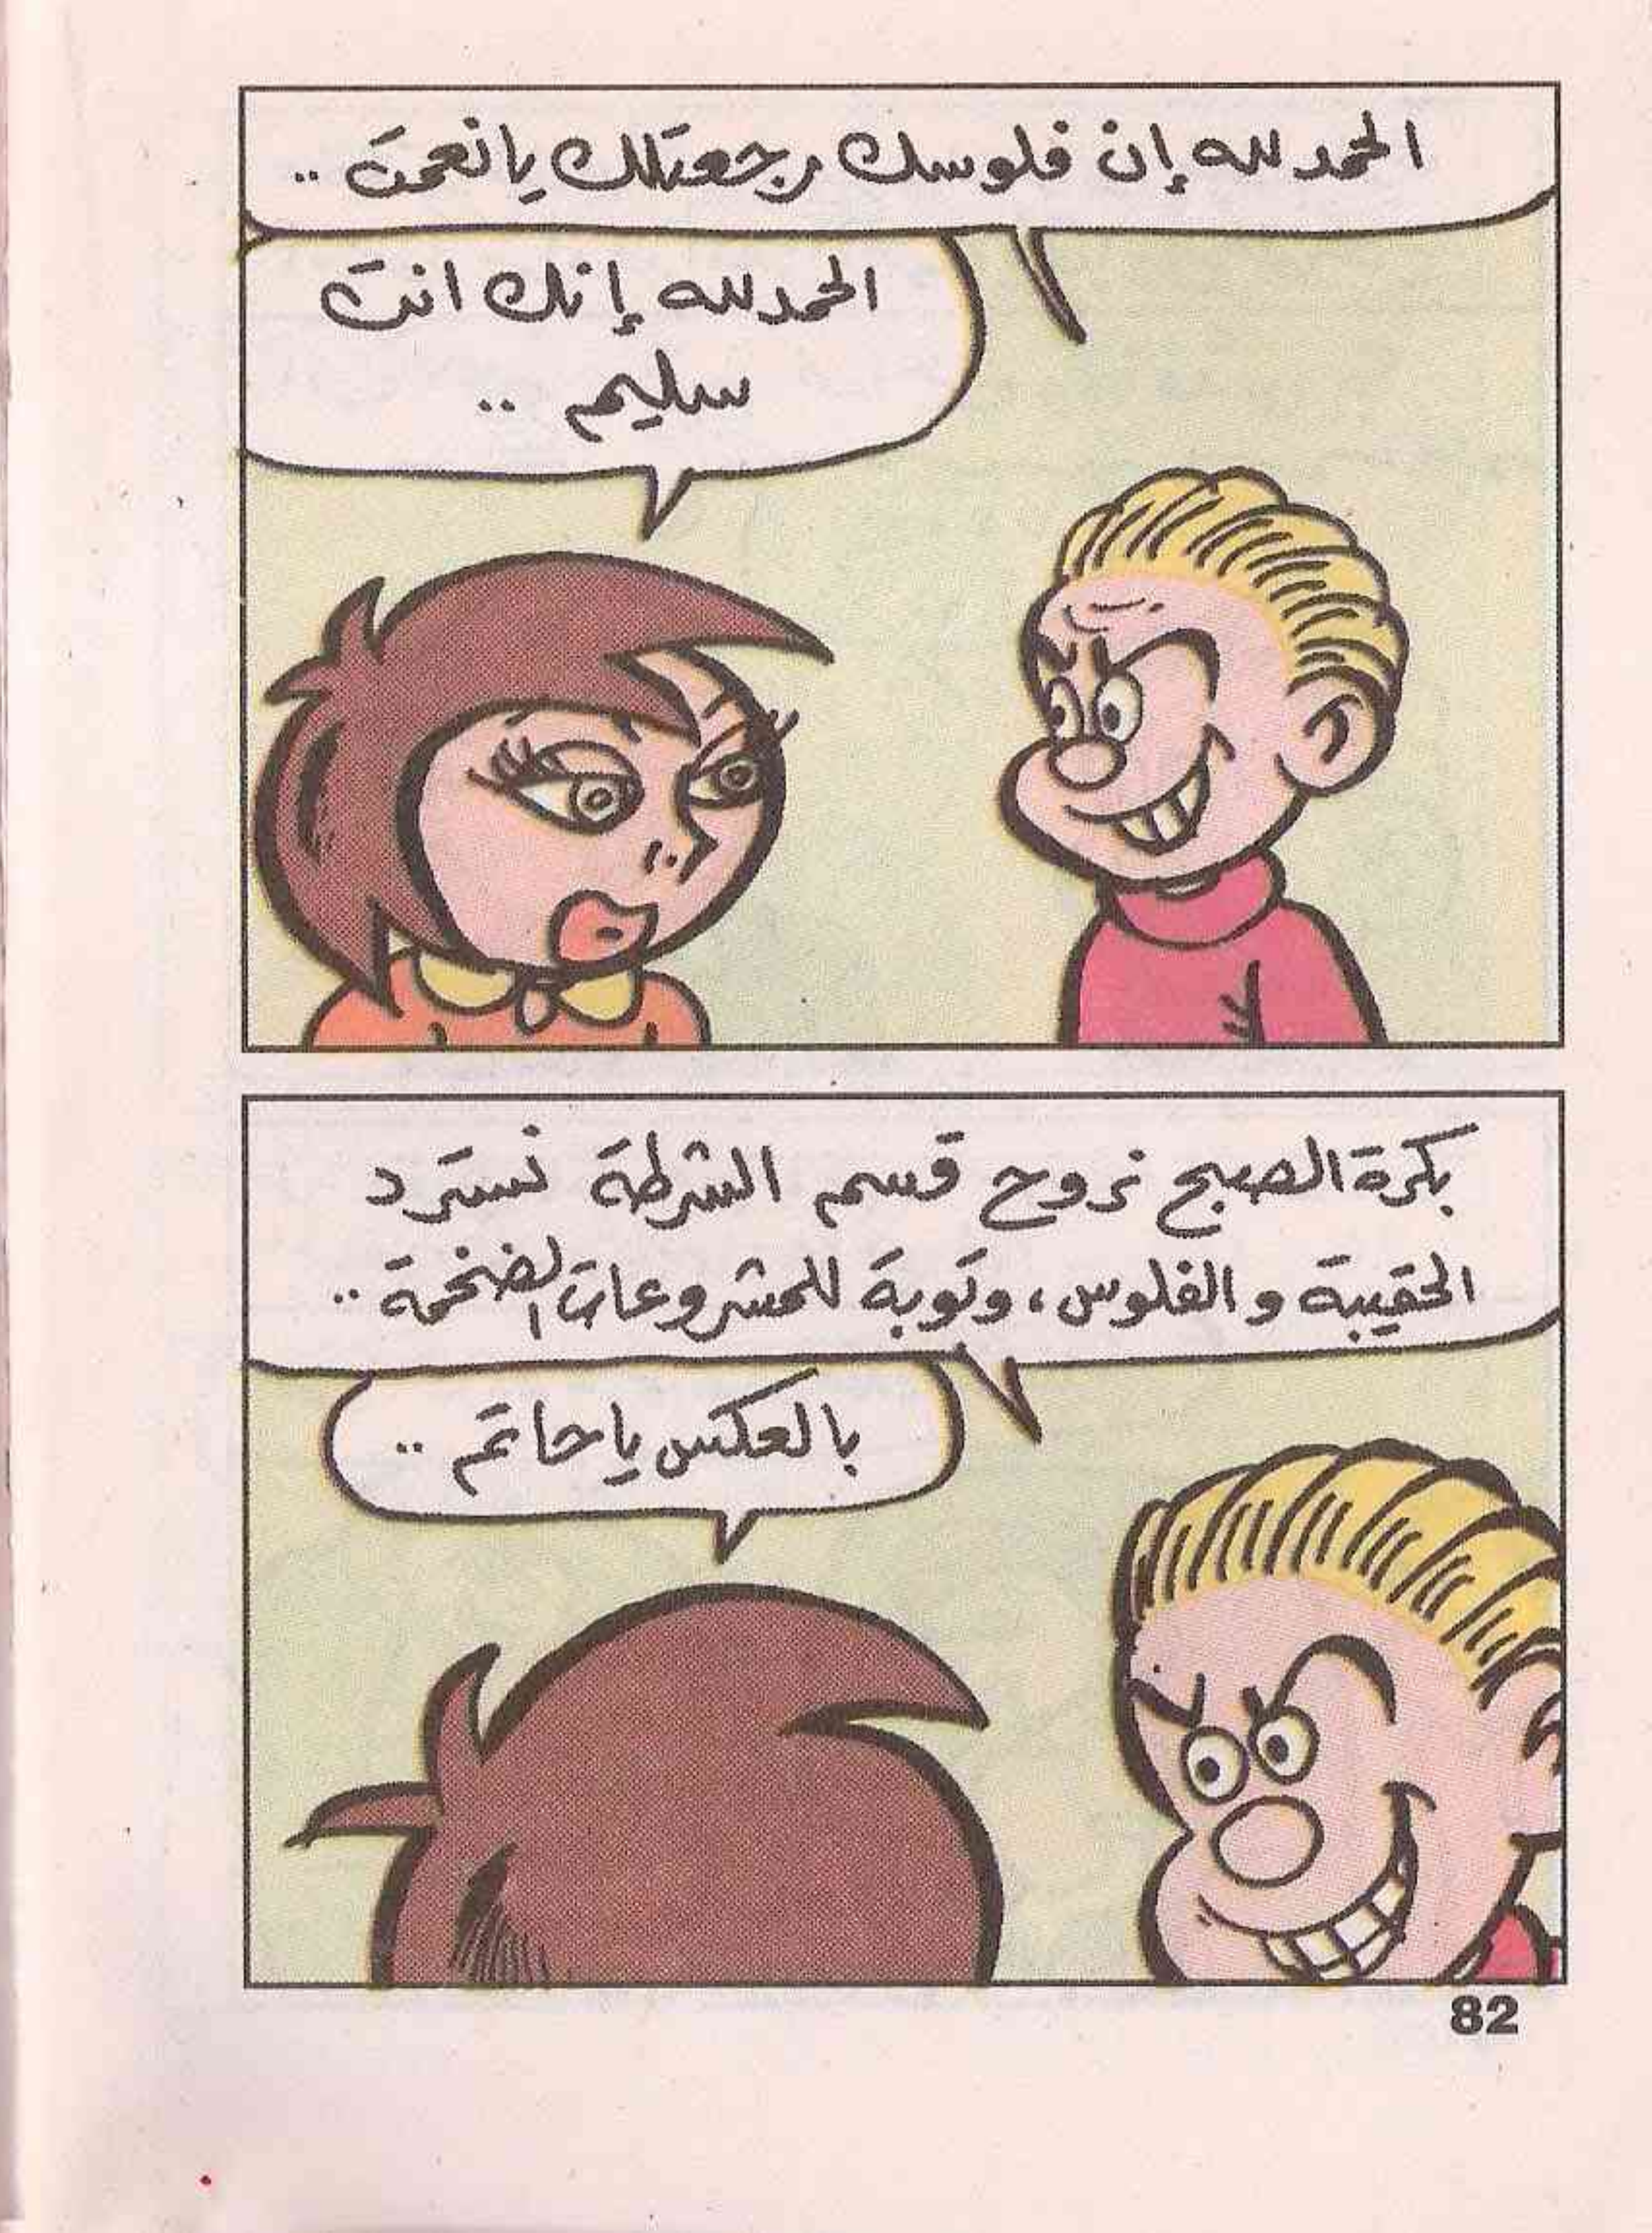 الحمد لله إن فلوسك رجعتلك يا نعمت ..
الحمد لله إنك انت
سليم ..
بكرة الصبح نروح قسم الشرطة نسترد
الحقيبة والفلوس، وتوبة للمشروعات الضخمة ..
بالعكس يا حاتم ..
82